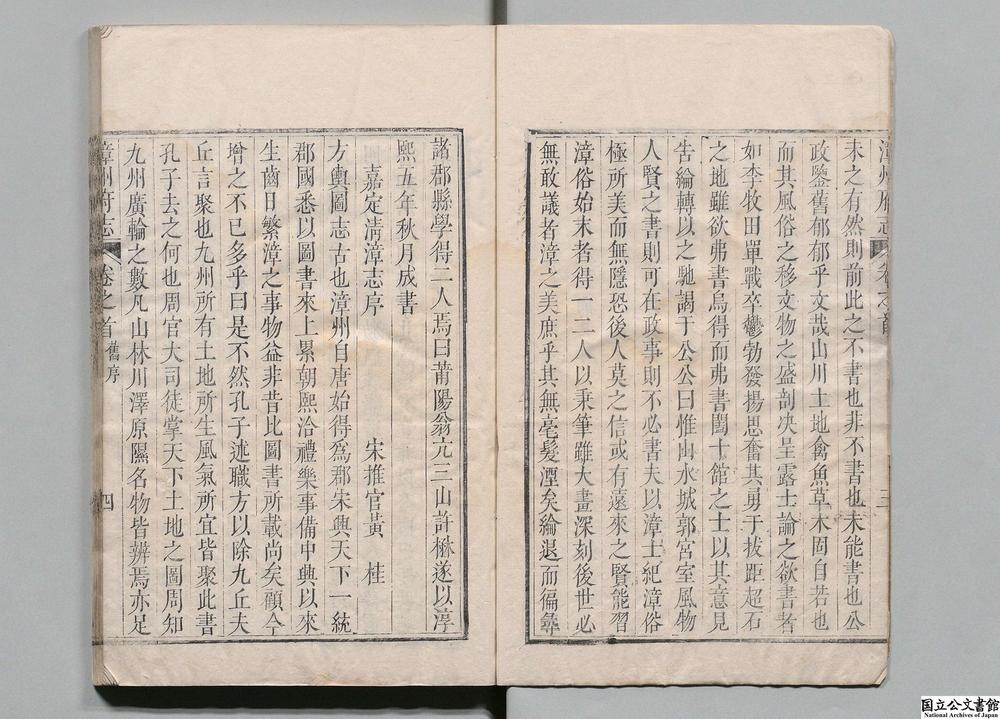 漳州府志 卷之首 三
未之有然則前此之不書也非不書也未能書也公
政鑒舊郁郁乎文哉山川土地禽魚草木固自若也
而其風俗之移文物之盛剖决呈露士論之欲書者
如李牧田單戰卒鬱勃發揚思奮其勇于拔距超石
之地雖欲弗書烏得而弗書閩十館之士以其意見
告綸轉以之馳謁于公公曰惟山水城郭宮室風物
人賢之書則可在政事則不必書夫以漳士紀漳俗
極所美而無隱恐後人莫之信或有遠來之賢能習
漳俗始末者得一二人以秉筆雖大畫深刻後世必
無敢議者漳之美庶乎其無毫髮湮矣綸退而徧彝
諸郡縣學得二人焉曰莆陽翁亢三山許楙遂以淳
熙五年秋月成書
嘉定清漳志序
宋推官黃 桂
方輿圖志古也漳州自唐始得爲郡宋興天下一統
郡國悉以圖書來上累朝熙洽禮樂事備中興以來
生齒日繁漳之事物益非昔比圖書所載尚矣顧今
增之不已多乎曰是不然孔子述職方以除九丘夫
丘言聚也九州所有土地所生風氣所宜皆聚此書
孔子去之何也周官大司徒掌天下土地之圖周知
九州廣輪之數凡山林川澤原隰名物皆辨焉亦足
漳州府志 卷之首 舊序 四
国立公文書館
National Archives of Japan